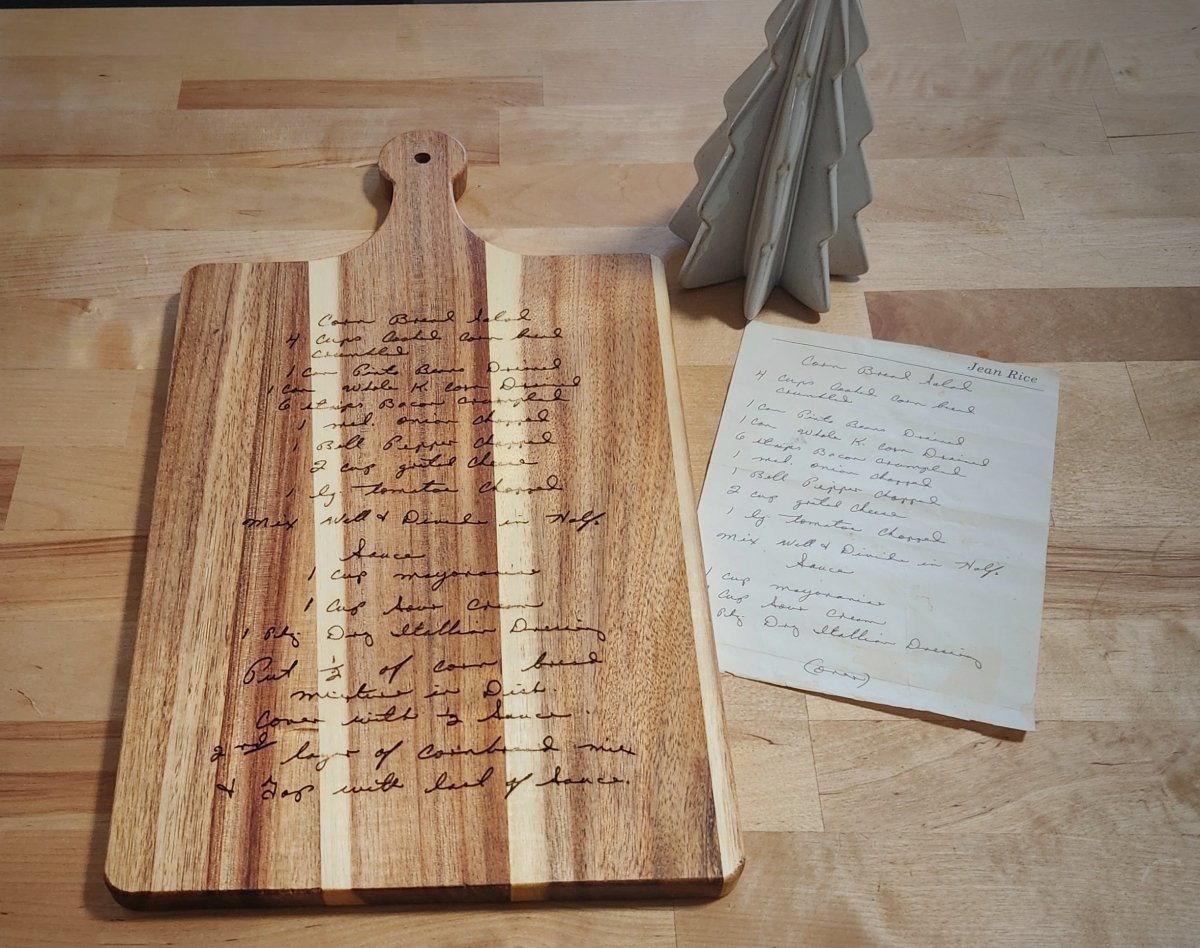 Corn Bread Salad
4 Cups Cooked corn bread
crumbled
1 can Pinto Beans Drained
1 can Whole K. corn Drained
6 strips Bacon crumpled
1 med. onion chopped
1 Bell Pepper chopped
2 cup grated cheese
1 lg. tomatoe chopped
Mix Well & Divide in Half.
Sauce
1 cup mayonanise
1 Cup Sour Cream
1 Pkg Dry Itallian Dressing
Put 1/2 of corn bread
mixture in Dish.
Cover with 1/2 Sauce.
2nd layer of Cornbread mix
& Top with last of Sauce.
Jean Rice
Corn Bread Salad
4 cups Cooked corn bread
crumbled
1 can Pinto Beans Drained
1 can Whole K. corn Drained
6 strips Bacon crumpled
1 med. onion chopped
1 Bell Pepper chopped
2 cup grated cheese
1 lg. tomatoe chopped
Mix Well & Divide in Half.
Sauce
1 cup mayonanise
Cup Sour Cream
Pkg Dry Itallian Dressing
(over)